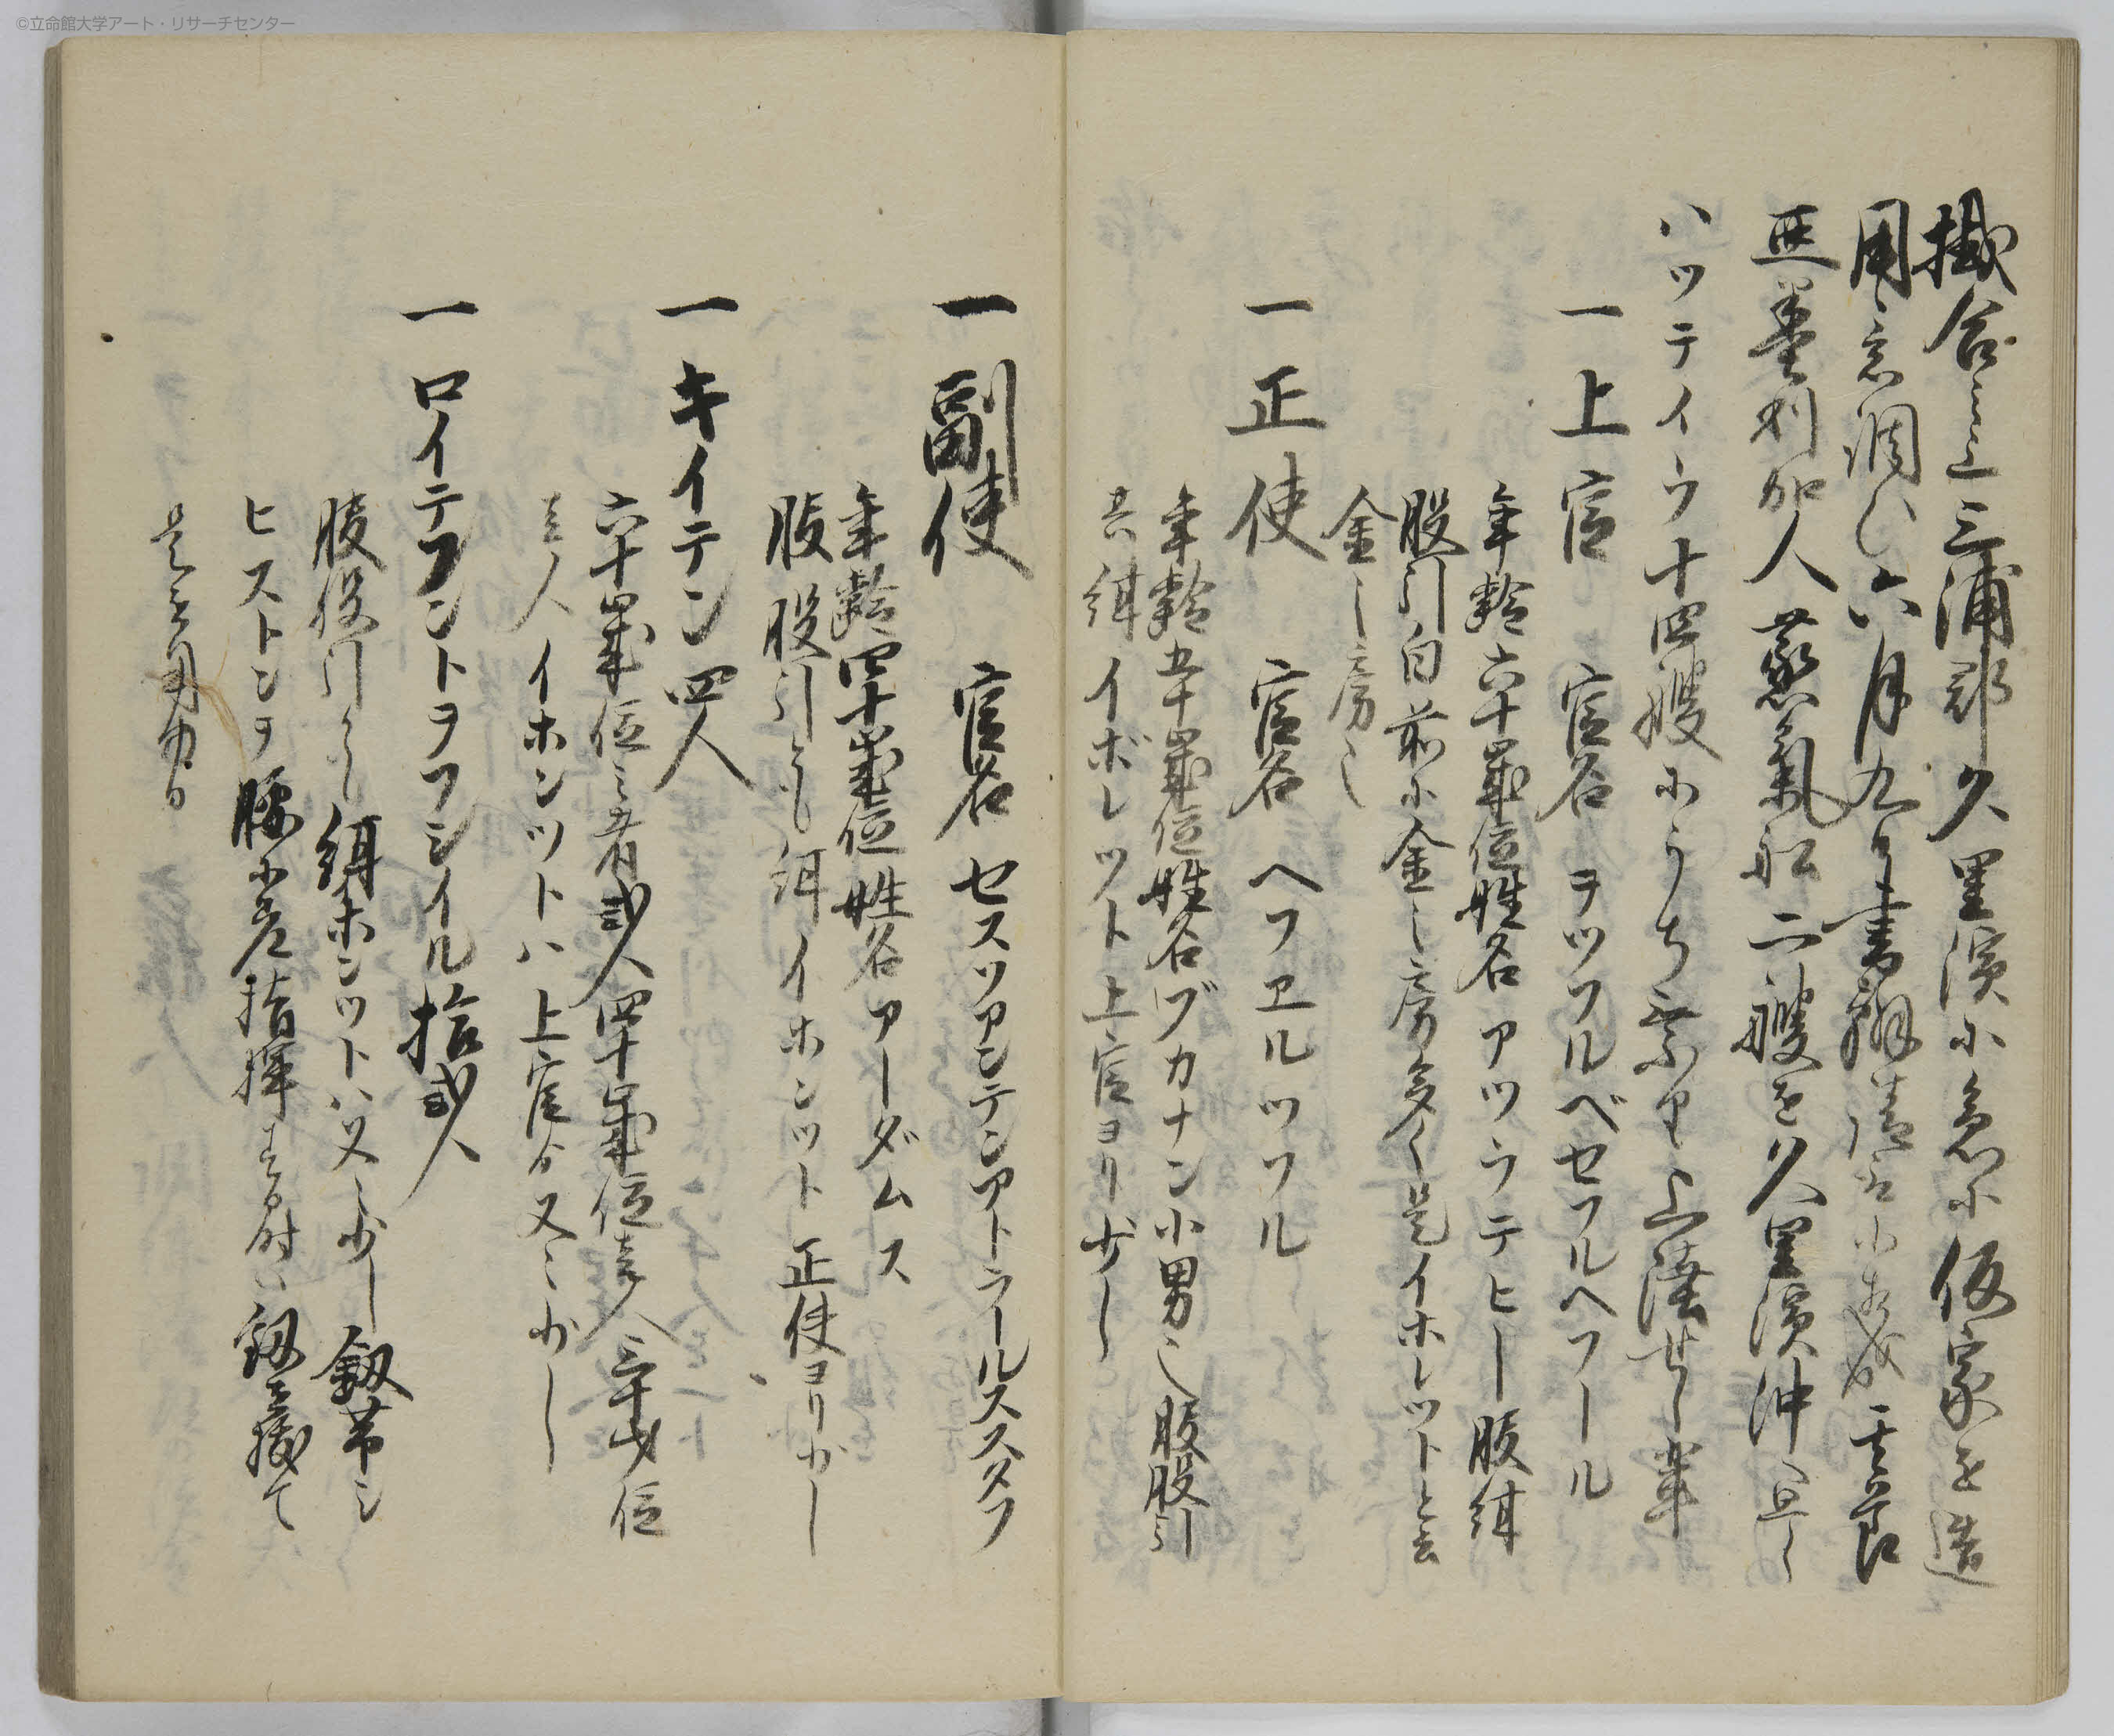 ©立命館大学アート・リサーチセンター
掛合之上三浦郡久里濱ニ急ニ仮家を造
用意調ひ六月九日書翰請
亜墨利加人蒸氣船二艘を久里濱沖へ
ハツテイラ十四艘ニうち乗り上陸せし輩
一上官 官名 ヲツフルベセフルヘフール
年齢六十歳位姓名アツラテヒー股
股引白前ニ金之房多く是イホレツトと云
金之房也
一正使 官名 ヘフヱルツフル
年齢五十歳位姓名ブカナン小男也股股引
共 イボレツト上官ヨリ少し
一副使 官名 セスツアンテンアトラールススタフ
年齢四十歳位姓名アーダムス
股股引とも イホンツト正使ヨリ少し
一キイテン四人
六十歳位之者弐人四十歳位壱人三十才位
壱人イホンツトハ上官ゟ又々少し
一ロイテフントヲフシイル拾弐人
股股引 ホンツトハ又々少し釼帯シ
ヒストンヲ腰ニ差指揮する時ハ釼を援て
是を用ゆる